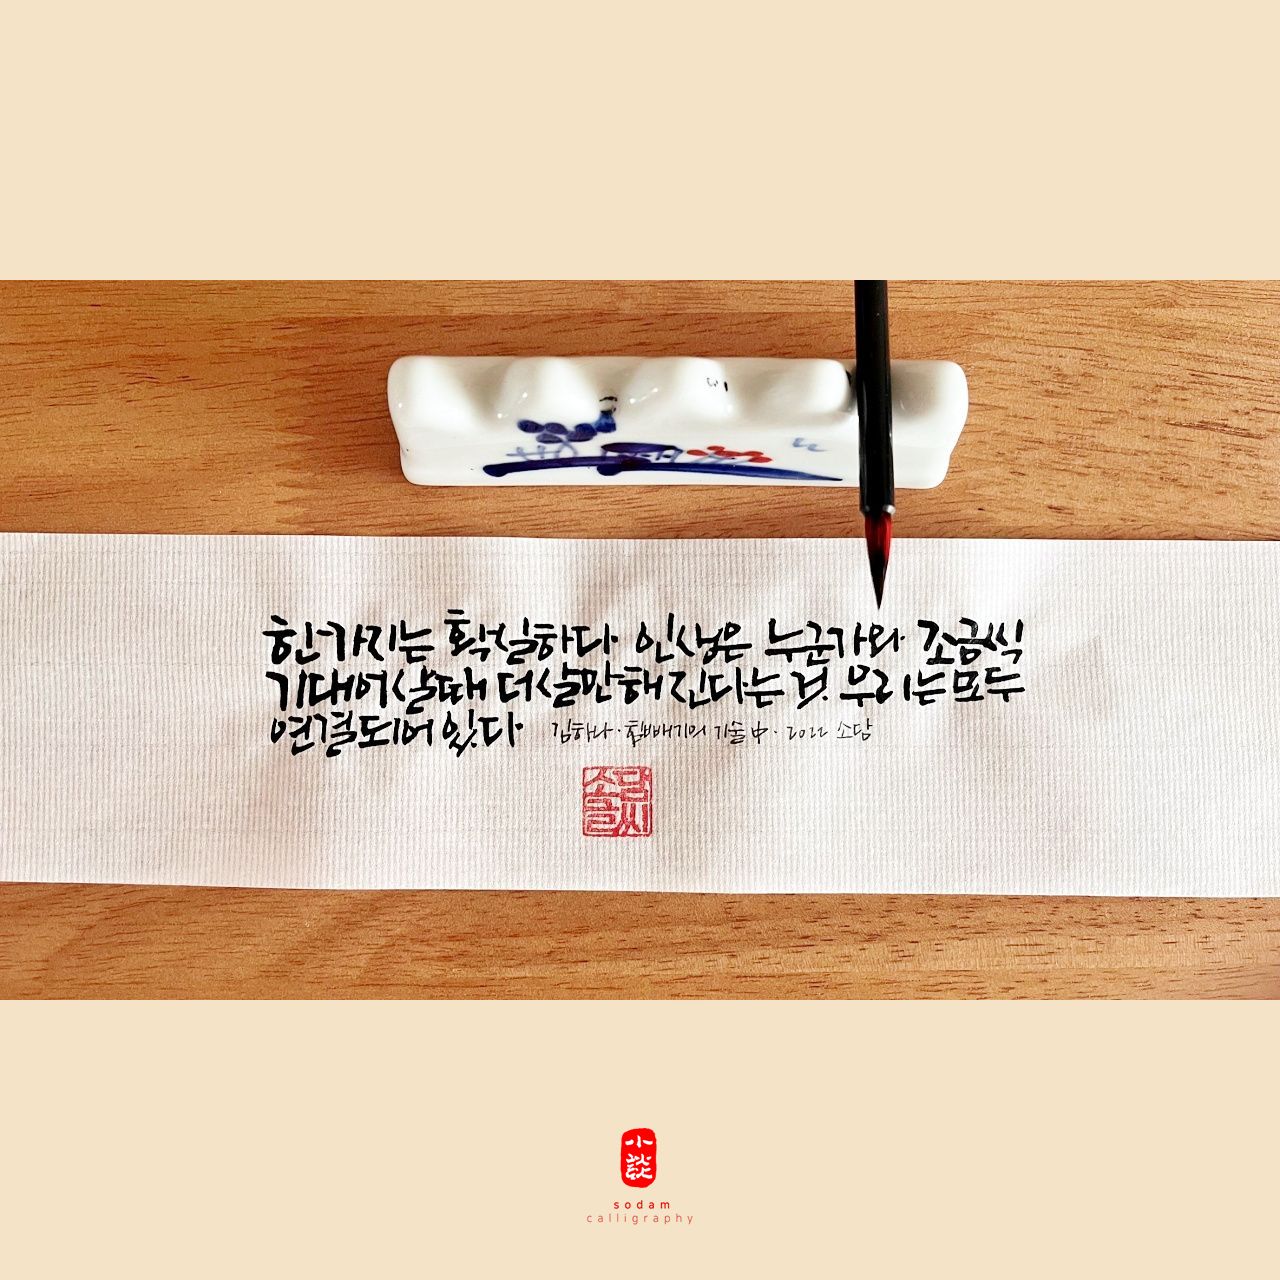 한가지는 확실하다 인생은 누군가와 조금씩
기대어 살 때 더 살만해진다는 것. 우리는 모두
연결되어 있다 김하나·힘빼기의 기술 中·2022 소담
소담
글씨
小
談
sodam
calligraphy